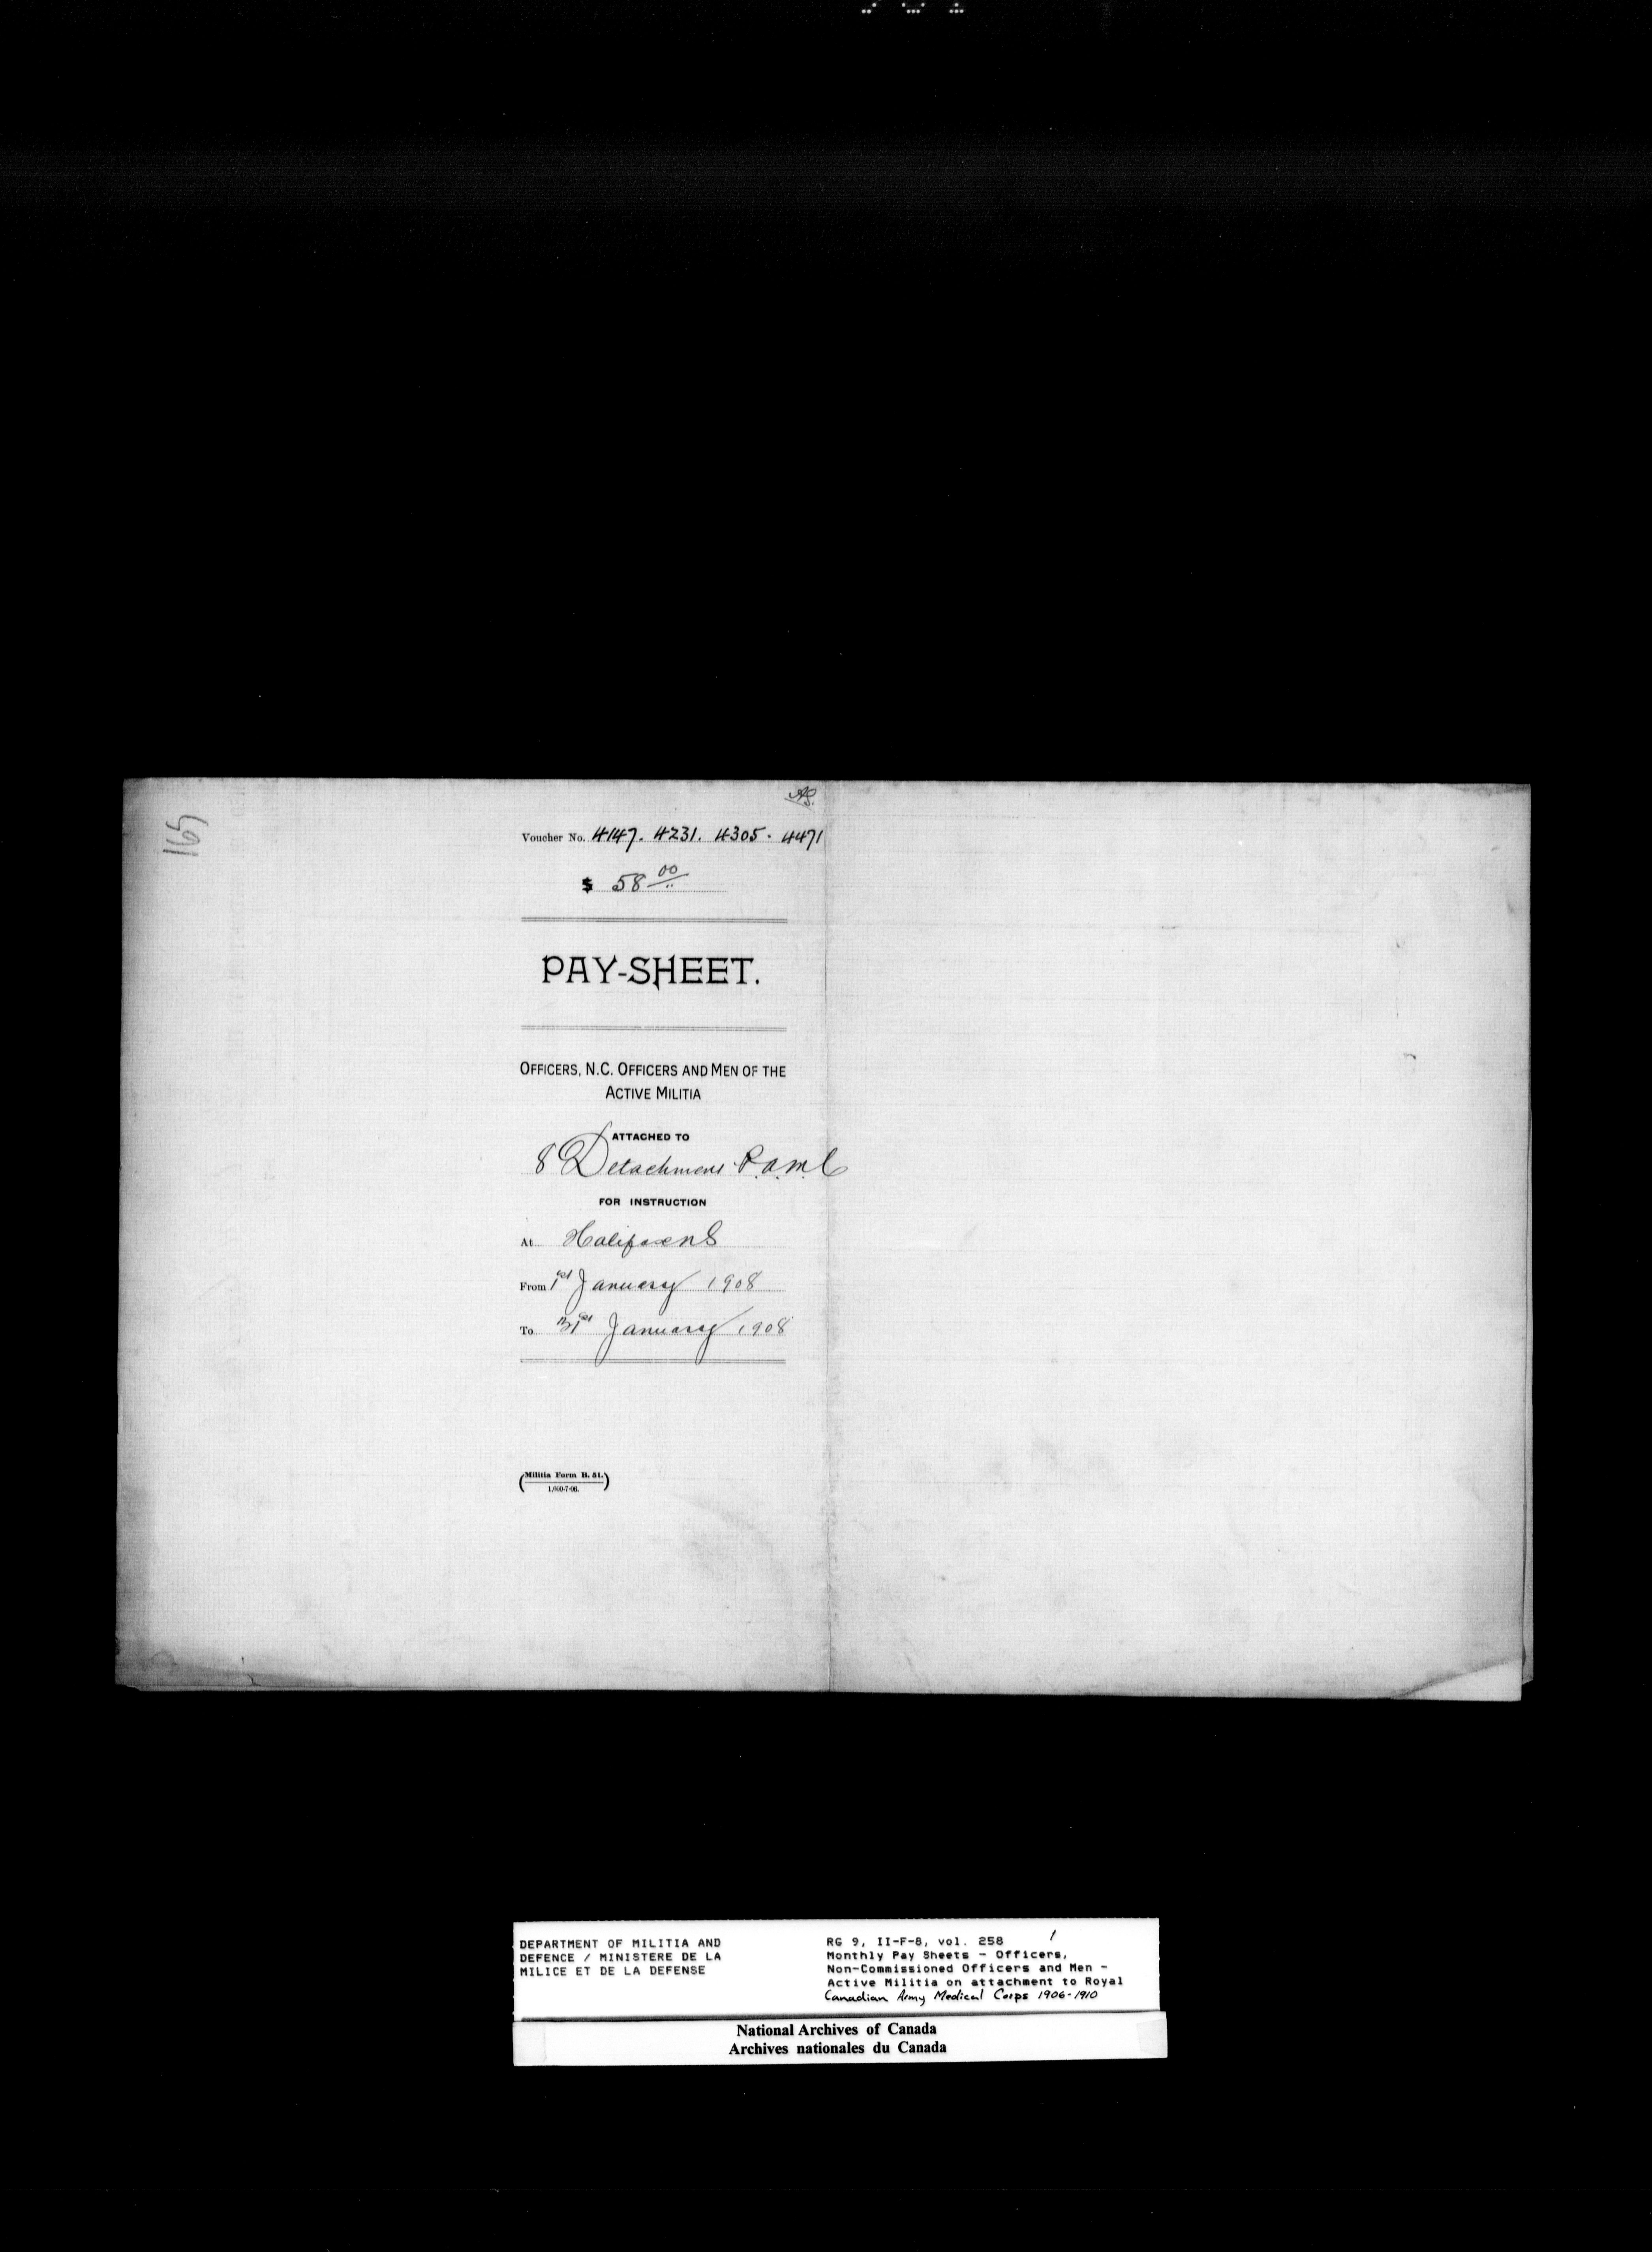 165
Voucher No. 4147. 4231. 4305. 4471
$ 58 00
PAY-SHEET.
OFFICERS, N.C. OFFICERS AND MEN OF THE
ACTIVE MILITIA
ATTACHED TO
8 Detachment R.A.M.C
FOR INSTRUCTION
At Halifax NS
From 1st January 1908
To 31st January 1908
(Militia Form B. 51.)
1,000-7-06.
DEPARTMENT OF MILITIA AND
DEFENCE / MINISTERE DE LA
MILICE ET DE LA DEFENSE
RG 9, II-F-8, vol. 258 1
Monthly Pay Sheets - Officers,
Non-Commissioned Officers and Men -
Active Militia on attachment to Royal
Canadian Army Medical Corps 1906-1910
National Archives of Canada
Archives nationales du Canada